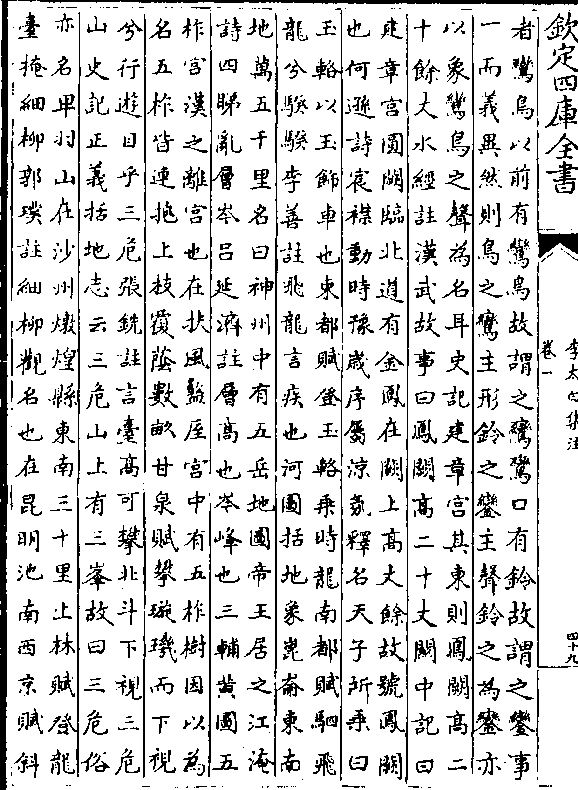 欽定四庫全書
李太白集注
卷一
四十九
者鸞鳥以前有鸞鳥故謂之鸞鸞口有鈴故謂之鑾事
一而義異然則鳥之鸞主形鈴之鑾主聲鈴之為鑾亦
以象鸞鳥之聲為名耳史記建章宮其東則鳳闕髙二
十餘丈水經註漢武故事曰鳳闕髙二十丈闗中記曰
建章宮圓闕臨北道有金鳳在闕上髙丈餘故號鳳闕
也何遜詩宸襟動時豫歲序屬涼氛釋名天子所乘曰
玉輅以玉飾車也東都賦登玉輅乘時龍南都賦駟飛
龍兮騤騤李善註飛龍言疾也河圖括地象崑崙東南
地萬五千里名曰神州中有五岳地圖帝王居之江淹
詩四睇亂層岑吕延濟註層髙也岑峰也三輔黄圖五
柞宮漢之離宮也在扶風盩厔宮中有五柞樹因以為
名五柞皆連抱上枝覆蔭數畝甘泉賦攀璇璣而下視
兮行遊目乎三危張銑註言臺髙可攀北斗下視三危
山史記正義括地志云三危山上有三峯故曰三危俗
亦名卑羽山在沙州燉煌縣東南三十里上林賦登龍
臺掩細柳郭璞註細柳觀名也在昆明池南西京賦斜